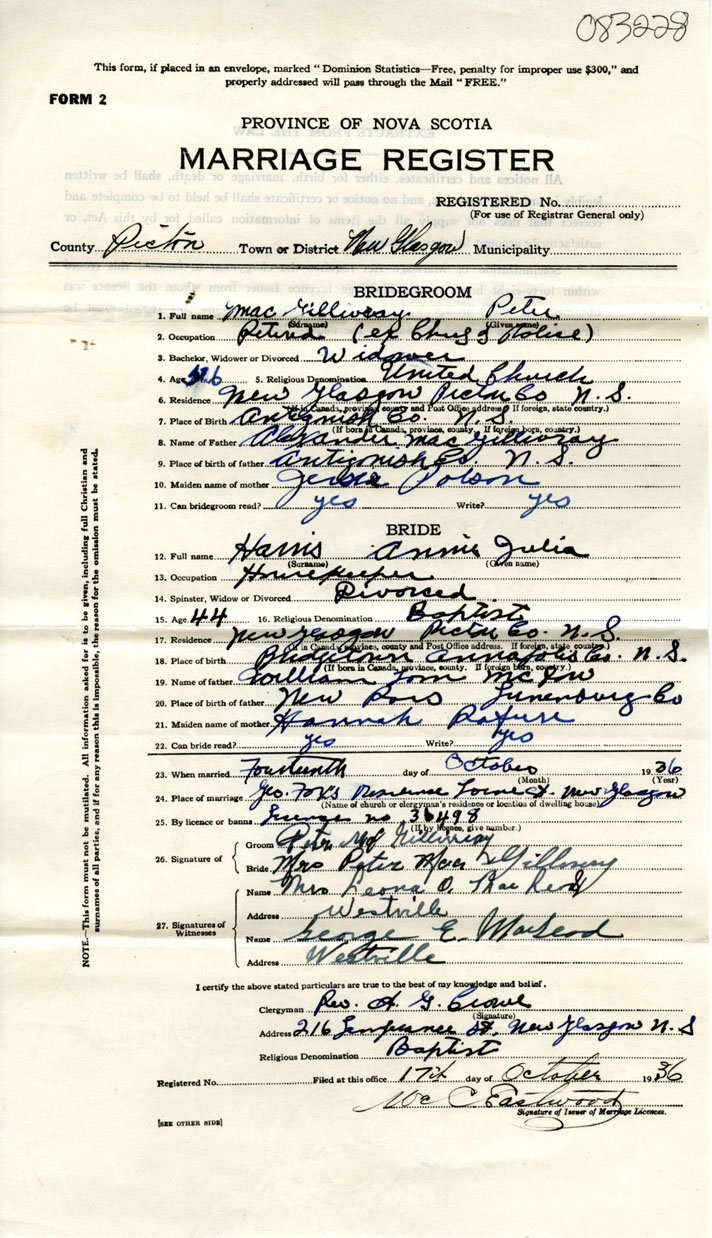 083228
This form, if placed in an envelope, marked "Dominion Statistics—Free, penalty for improper use $300," and
properly addressed will pass through the Mail "FREE."
FORM 2
PROVINCE OF NOVA SCOTIA
MARRIAGE REGISTER
REGISTERED No.
(For use of Registrar General only)
County Pictou Town or District New Glasgow Municipality
BRIDEGROOM
1. Full name MacGillivray Peter
(Surname) (Given name)
2. Occupation Retired (ex Chief of Police)
3. Bachelor, Widower or Divorced Widower
4. Age 5. Religious Denomination United Church
6. Residence New Glasgow Pictou Co N.S.
(If in Canada, province, county and Post Office address. If foreign, state country.)
7. Place of Birth Antigonish Co. N.S.
(If born in Canada, province, county. If foreign born, country.)
8. Name of Father Alexander MacGillivray
9. Place of birth of father Antigonish Co. N.S.
10. Maiden name of mother Jessie Polson
11. Can bridegroom read? yes Write? yes
BRIDE
12. Full name Harris Annie Julia
(Surname) (Given name)
13. Occupation Housekeeper
14. Spinster, Widow or Divorced Divorced
15. Age 44 16. Religious Denomination Baptist
17. Residence New Glasgow Pictou Co. N.S.
(If in Canada, province, county and Post Office address. If foreign, state country.)
18. Place of birth Bridgetown Annapolis Co. N.S.
(If born in Canada, province, county. If foreign born, country.)
19. Name of father William Tom
20. Place of birth of father New Ross Lunenburg Co
21. Maiden name of mother Hannah Rafuse
22. Can bride read? yes Write? yes
23. When married Fourteenth day of October 1936
(Month) (Year)
24. Place of marriage Geo. Fox's Residence Lorne St. New Glasgow
(Name of church or clergyman's residence or location of dwelling house)
25. By licence or banns License no 36498
(If by licence, give number.)
26. Signature of
Groom Peter McGillivray
Bride Mrs Peter MacGillivray
27. Signatures of Witnesses
Name Mrs Leona O. MacLeod
Address Westville
Name George E. MacLeod
Address Westville
I certify the above stated particulars are true to the best of my knowledge and belief.
Clergyman Rev. A. G. Crowe
(Signature)
Address 216 Temperance St. New Glasgow N.S
Religious Denomination Baptist
Registered No. Filed at this office 17th day of October 1936
Wm C Eastwood
Signature of Issuer of Marriage Licences.
[SEE OTHER SIDE]
NOTE.—This form must not be mutilated. All information asked for is to be given, including full Christian and
surnames of all parties, and if for any reason this is impossible, the reason for the omission must be stated.